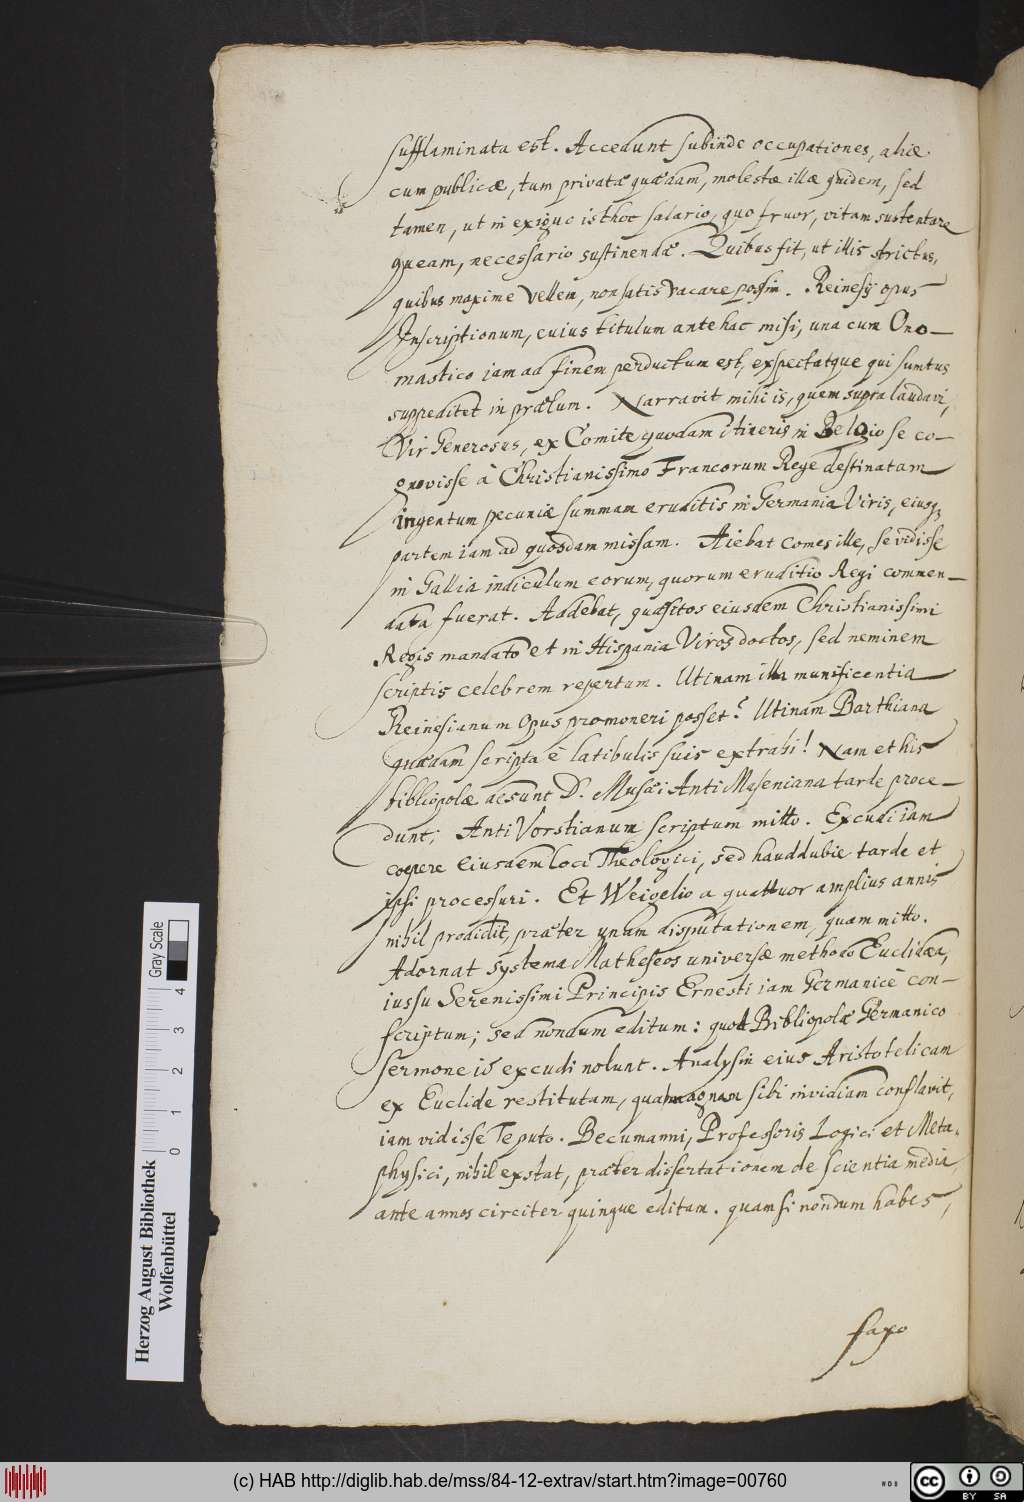 sufflaminata est. Accedunt subinde occupationes, aliæ
cum publicæ, tum privatæ quædam, molestæ illæ quidem, sed
tamen, ut in exiguo isthoc salario, quo fruor, vitam sustentare
queam, necessario sustinendæ. Quibus fit, ut illis strictus,
quibus maxime vellem, non satis vacare possim. Reinesij opus
Inscriptionum, cuius titulum antehac misi, una cum Ono-
mastico iam ad finem perductum est, expectatque qui sumtus
suppeditet in prælum. Narravit mihi is, quem supra laudavi,
Vir Generosus, ex Comite quodam itineris in Belgio se co-
gnovisse à Christianissimo Francorum Rege destinatam
ingentum pecuniæ summam eruditis in Germania Viris, eiusq;
partem iam ad quosdam missam. Aiebat Comes ille, se vidisse
in Gallia indiculum eorum, quorum eruditio Regi commen-
data fuerat. Addebat, quæsitos eiusdem Christianissimi
Regis mandato et in Hispania Viros doctos, sed neminem
scriptis celebrem repertum. Utinam illa munificentia
Reinesianum Opus promoneri posset! Utinam Barthiana
quædam scripta è latibulis suis extrahi! Nam et his
bibliopolæ desunt D. Musæi Anti Maseniana tarde proce-
dunt; Anti Vorstianum scriptum mitto. Excudi iam
coepere eiusdem loci Theologici, sed haud dubie tarde et
ipsi processuri. Et Weigelio a quattuor amplius annis
nihil prodidit, præter unam disputationem, quam mitto.
Adornat systema Matheseos universæ methodo Euclidæa,
iussu Serenissimi Principis Ernesti iam Germanicè con-
scriptum; sed nondum editum: quod Bibliopolæ Germanico
sermone id excudi nolunt. Analysin eius Aristotelicam
ex Euclide restitutam, qua magnam sibi invidiam conflavit,
iam vidisse Te puto. Becumanni, Professoris Logici et Meta-
physici, nihil exstat, præter dissertationem de scientia media,
ante annos circiter quinque editam. quam si nondum habes,
faxo
Herzog August Bibliothek
Wolfenbüttel
Gray Scale
0 1 2 3 4
(c) HAB http://diglib.hab.de/mss/84-12-extrav/start.htm?image=00760
cc BY SA